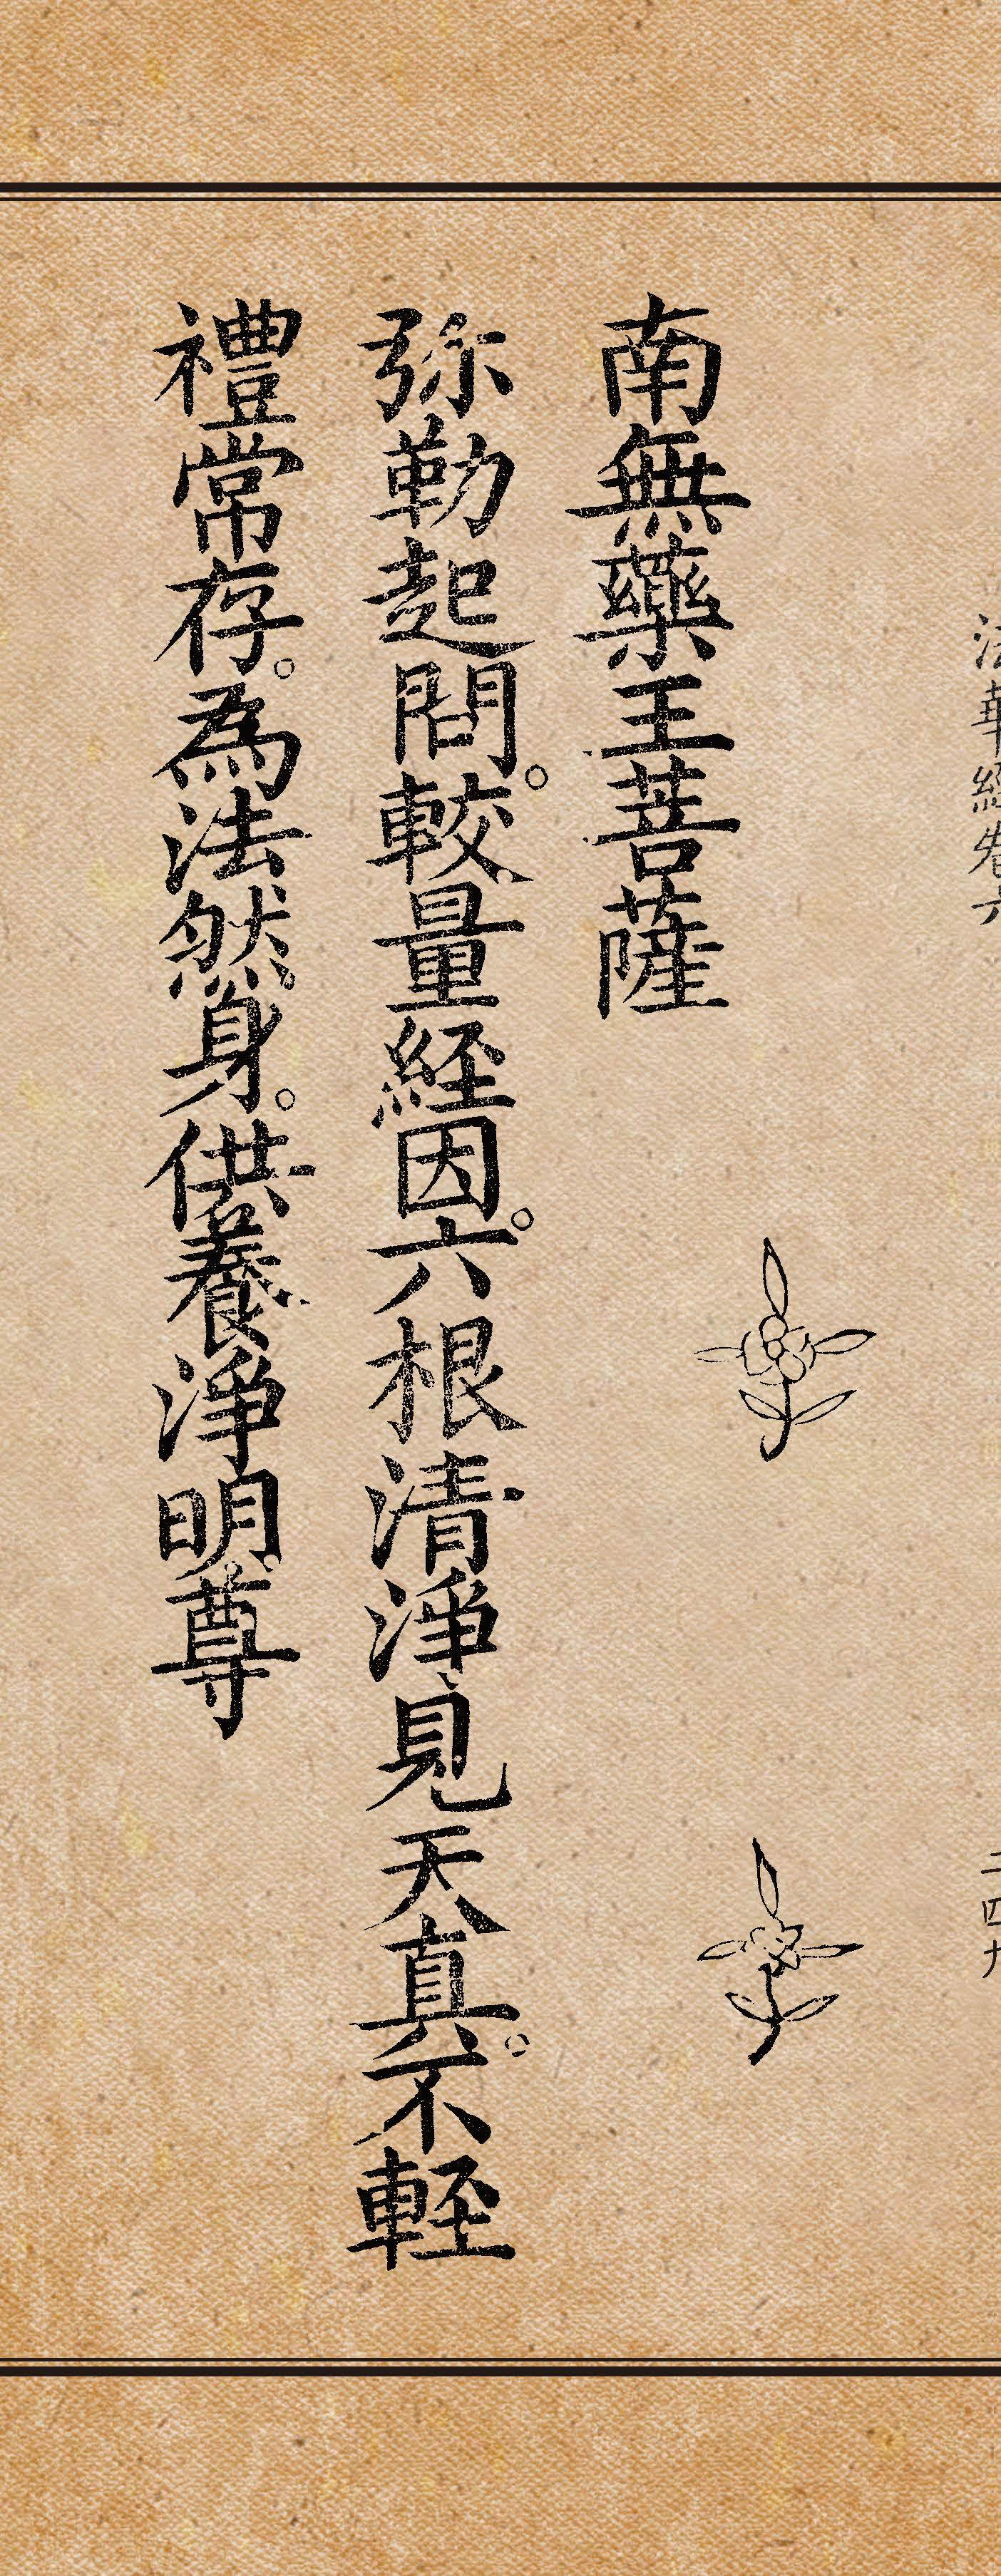 法華經卷六
二四九
南無藥王菩薩
弥勒起問。較量経因。六根清淨見天真。不軽
禮常存。為法然身。供養淨明尊